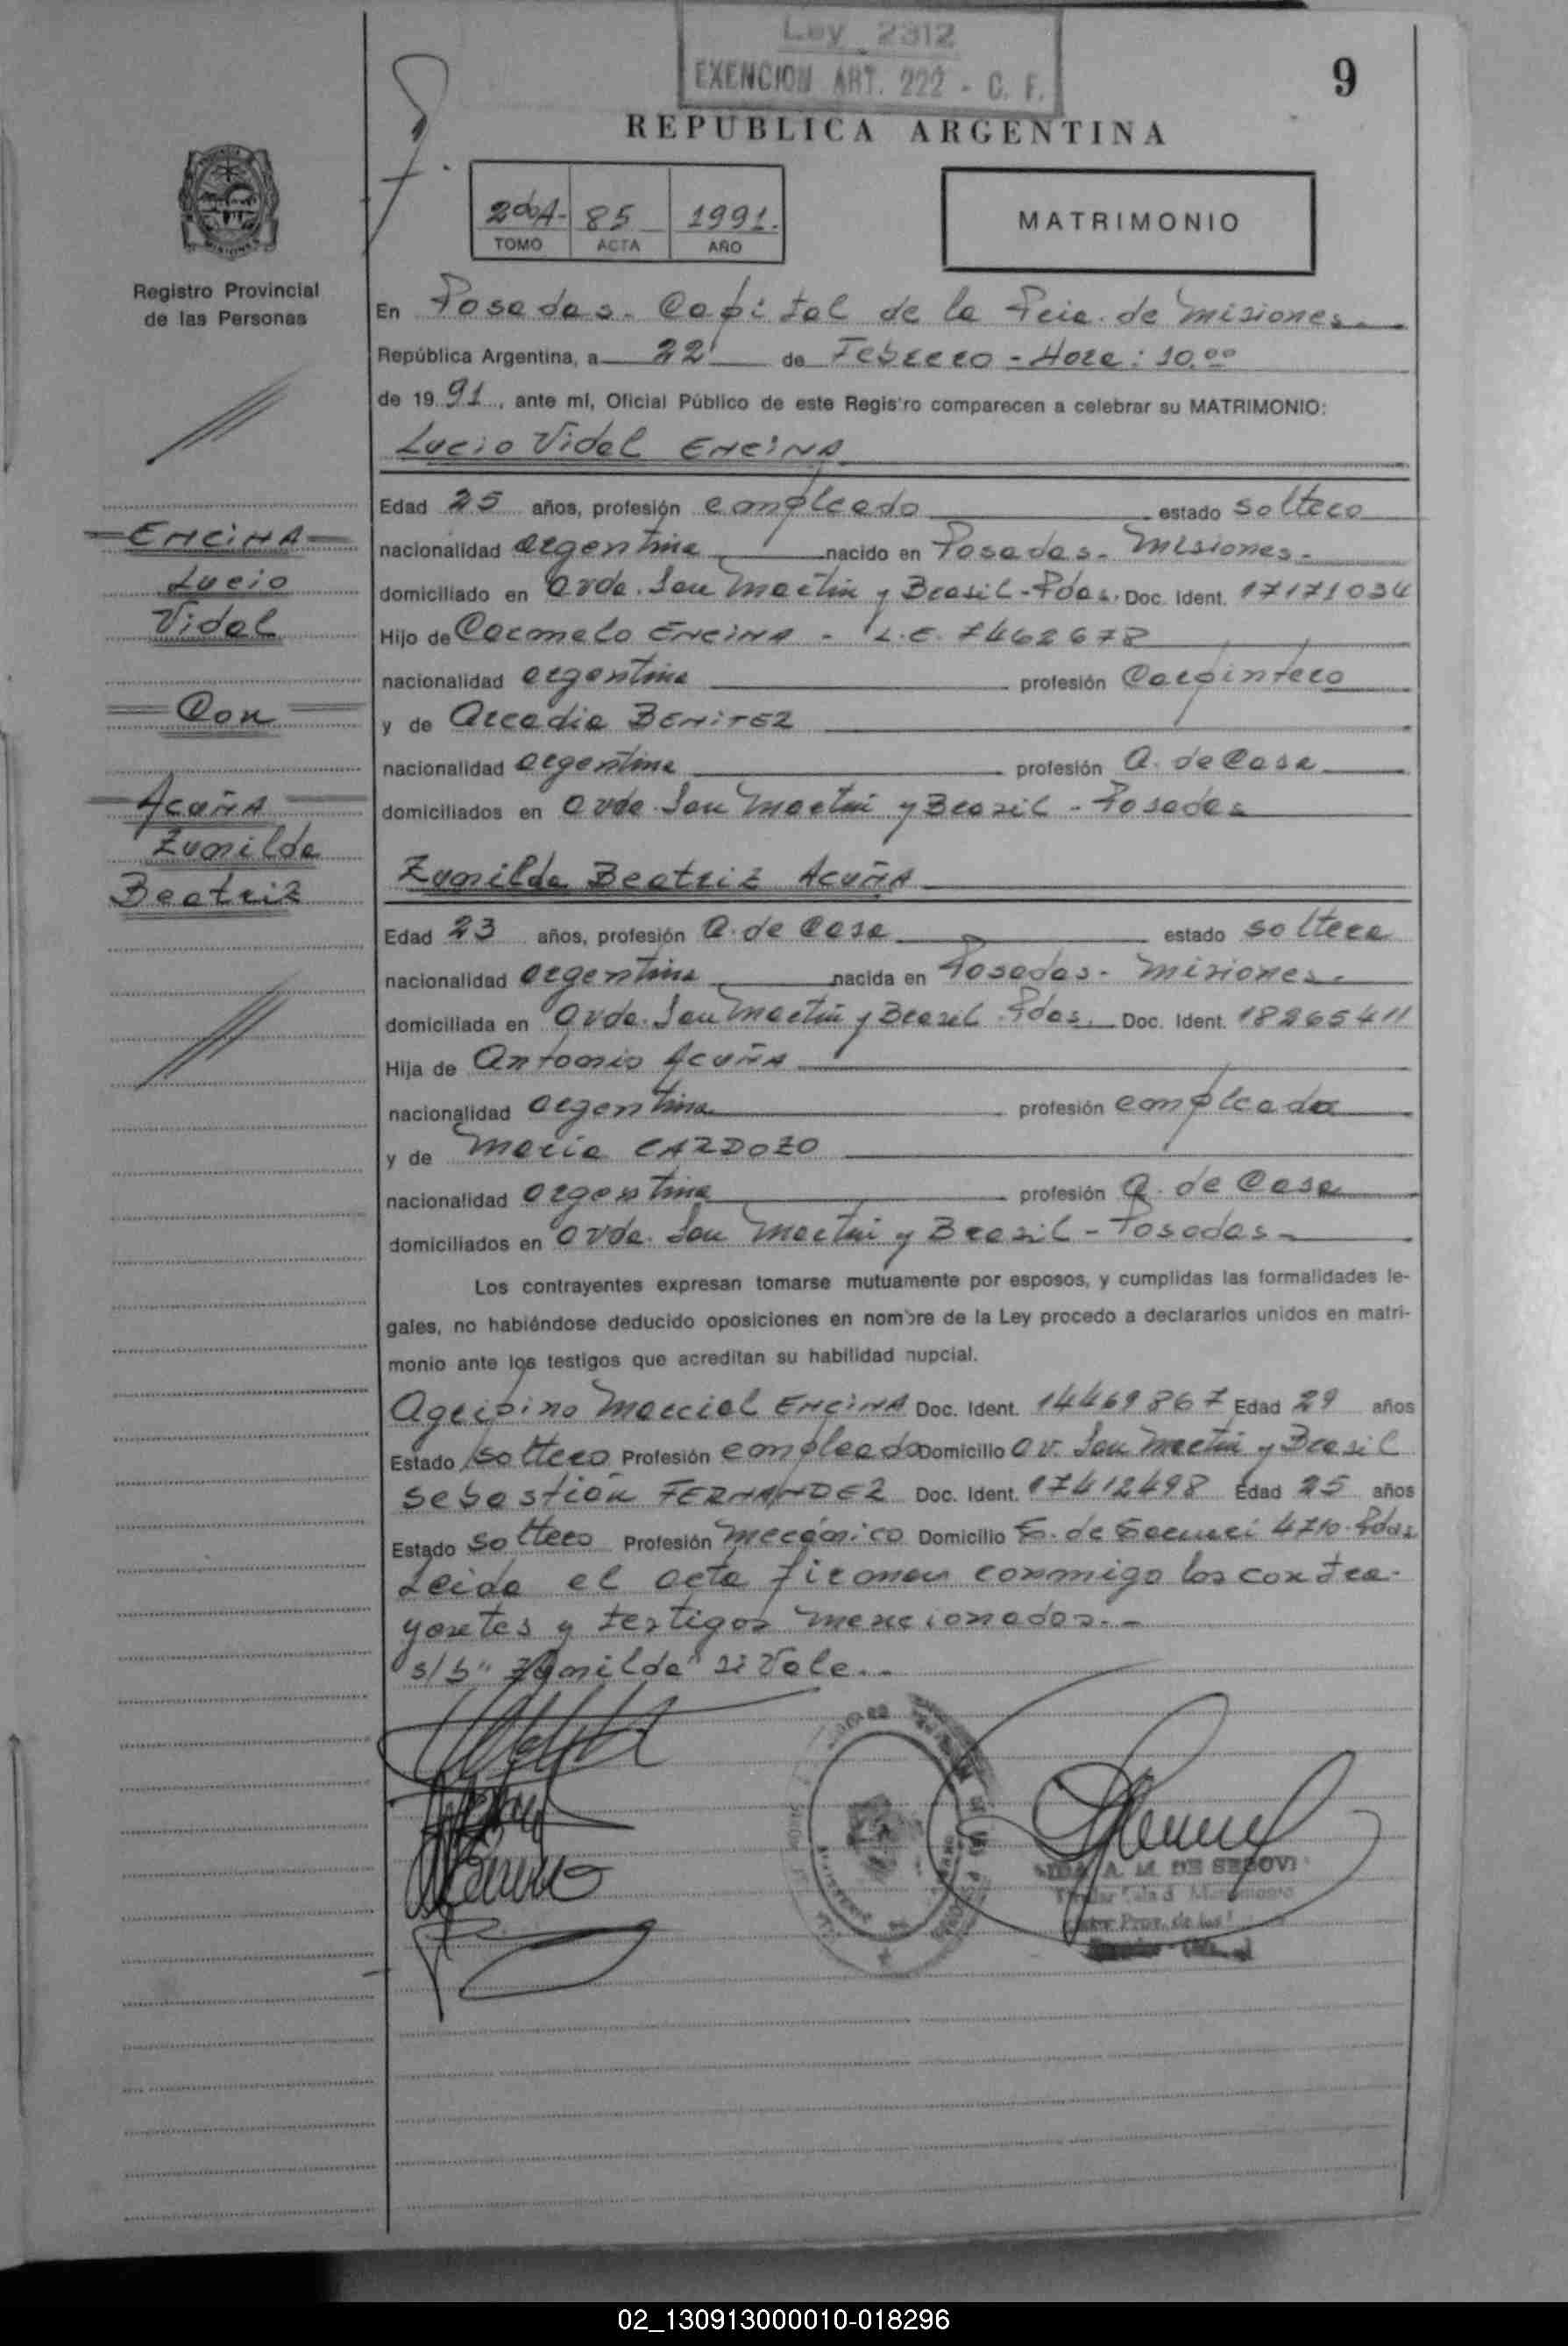 Ley 2312
EXENCION ART. 222 - C. F.
9
REPUBLICA ARGENTINA
2doA- 85 1991.
TOMO ACTA AÑO
MATRIMONIO
Registro Provincial
de las Personas
En Posadas. Capital de la Pcia. de Misiones
República Argentina, a 22 de Febrero - Hora: 10.00
de 1991, ante mí, Oficial Público de este Registro comparecen a celebrar su MATRIMONIO:
Lucio Vidal ENCINA
Edad 25 años, profesión empleado estado soltero
nacionalidad argentina nacido en Posadas. Misiones.
domiciliado en Avda. San Martín y Brasil - Pdas. Doc. Ident. 17171034
Hijo de Carmelo ENCINA - L.E. 7462678
nacionalidad argentina profesión Carpintero
y de Arcadia BENITEZ
nacionalidad argentina profesión A. de Casa
domiciliados en Avda. San Martín y Brasil - Posadas
ENCINA
Lucio
Vidal
Con
ACUÑA
Zunilda
Beatriz
Zunilda Beatriz ACUÑA
Edad 23 años, profesión A. de Casa estado soltera
nacionalidad argentina nacida en Posadas. Misiones.
domiciliada en Avda. San Martín y Brasil Pdas. Doc. Ident. 18265411
Hija de Antonio ACUÑA
nacionalidad argentina profesión empleado
y de María CARDOZO
nacionalidad argentina profesión A. de Casa
domiciliados en Avda. San Martín y Brasil - Posadas
Los contrayentes expresan tomarse mutuamente por esposos, y cumplidas las formalidades le-
gales, no habiéndose deducido oposiciones en nombre de la Ley procedo a declararlos unidos en matri-
monio ante los testigos que acreditan su habilidad nupcial.
Agripino Marcial ENCINA Doc. Ident. 14469867 Edad 29 años
Estado soltero Profesión empleado Domicilio Av. San Martín y Brasil
Sebastián FERNANDEZ Doc. Ident. 17412498 Edad 25 años
Estado soltero Profesión mecánico Domicilio de 4710. Pdas
Leida el acta firman conmigo los contra-
yentes y testigos mencionados.-
s/b " Zunilda" si Vale.-
A. M. DE SEGOVI
02_130913000010-018296